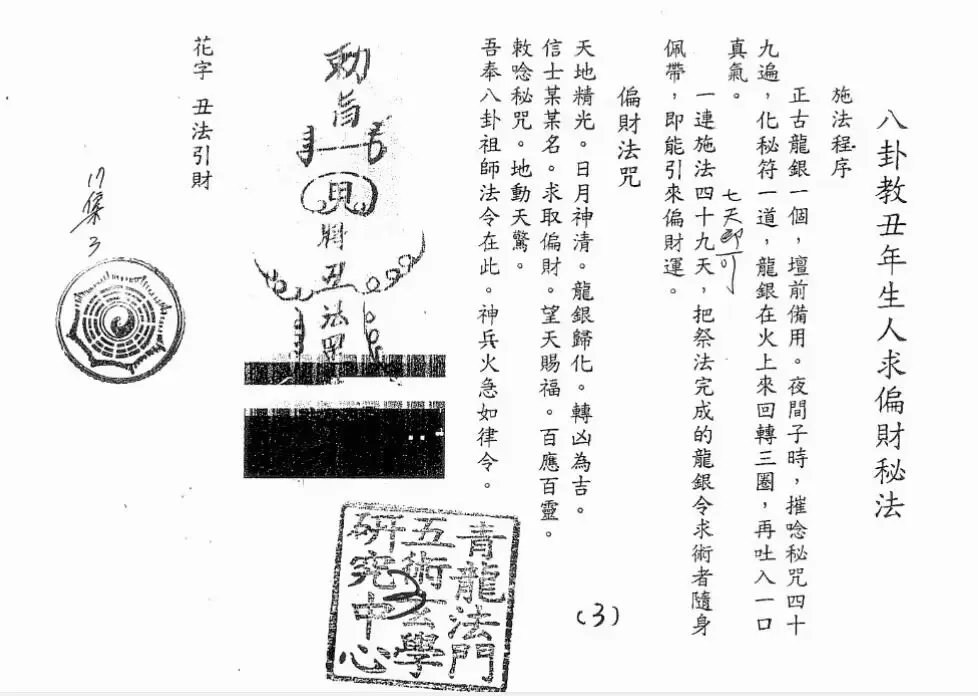 八卦教丑年生人求偏財秘法
施法程序
正古龍銀一個，壇前備用。夜間子時，摧唸秘咒四十
九遍，化秘符一道，龍銀在火上來回轉三圈，再吐入一口
真氣。
七天即可
一連施法四十九天，把祭法完成的龍銀令求術者隨身
佩帶，即能引來偏財運。
偏財法咒
天地精光。日月神清。龍銀歸化。轉凶為吉。
信士某某名。求取偏財。望天賜福。百應百靈。
敕唸秘咒。地動天驚。
吾奉八卦祖師法令在此。神兵火急如律令。
勅
將丑法
花字 丑法引財
集3
青龍法門
五術玄學
研究中心
(3)